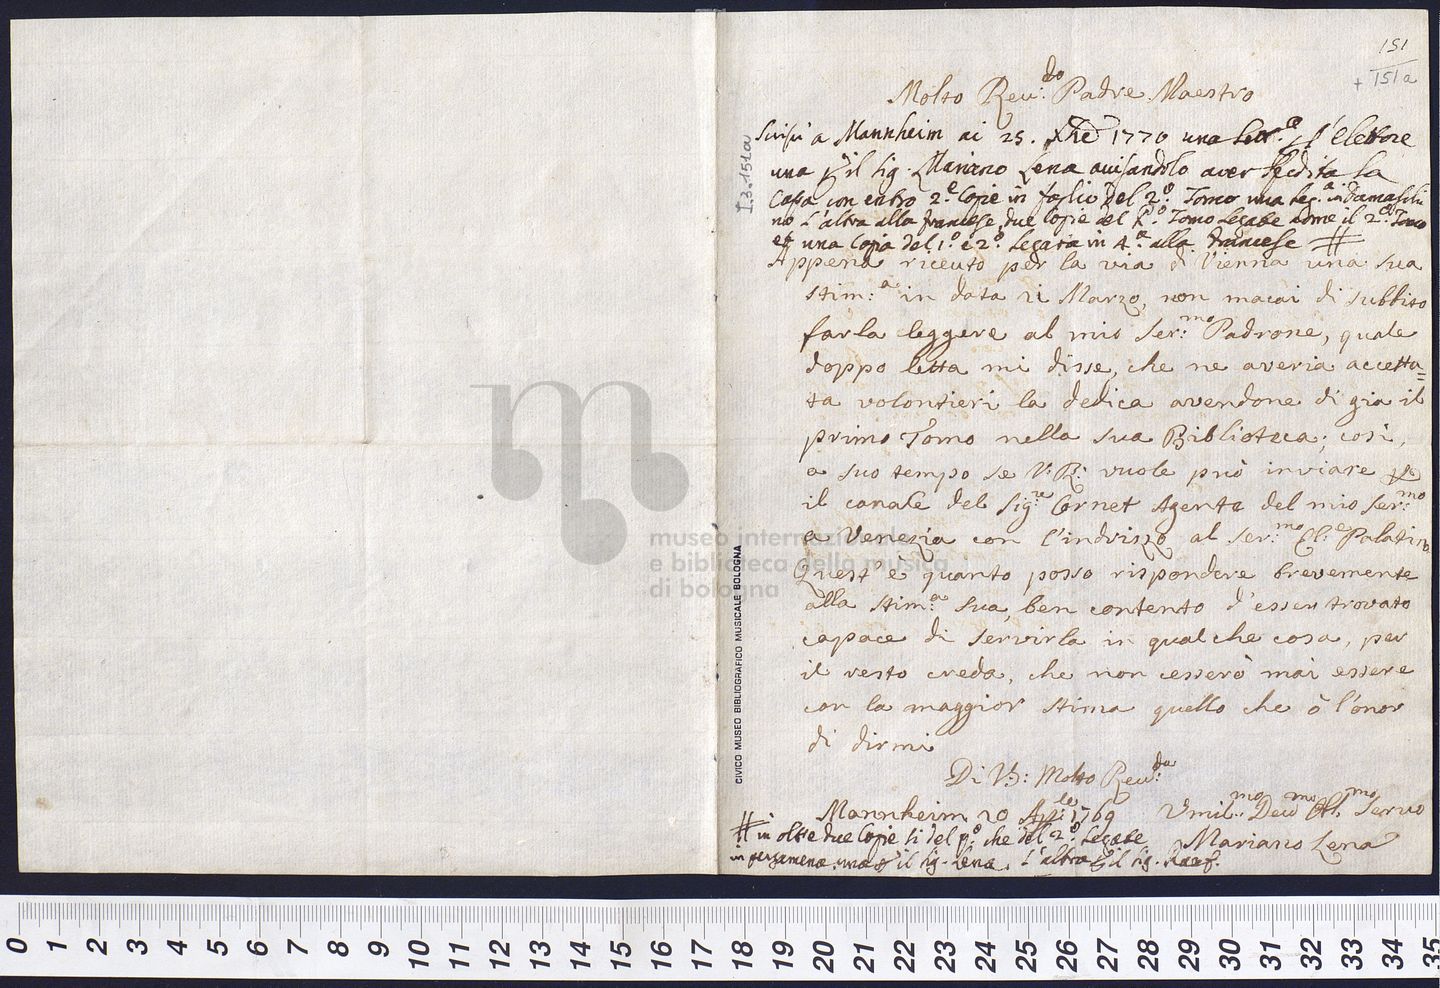 151
+ 151a
Molto Reu:do Padre Maestro
Scrissi a Mannheim ai 25. Xbre 1770 una Lett.a p l'Elettore
una p il Sig. Mariano Lena auisandolo aver spedita la
Cassa con entro 2.e Copie in foglio del 2.o Tomo una leg.a in Damaschi
no l'altra alla francese, due Copie del p.o Tomo Legate come il 2.o Tomo
et una Copia del 1.o e 2.o Legata in 4.o alla francese #
Appena riceuto per la via di Vienna una sua
stim:a in data 11 Marzo, non macai di subbito
farla leggere al mio Ser:mo Padrone, quale
doppo letta mi disse, che ne averia accetta=
ta volontieri la dedica avendone di gia il
primo Tomo nella sua Biblioteca; così,
a suo tempo se V: R: vuole può inviare p
il canale del Sig:re Cornet Agente del mio Ser:mo
a Venezia con l'indrizzo al Ser:mo El:e Palatino.
Quest' è quanto posso rispondere brevemente
alla stim:a sua, ben contento d'esser trovato
capace di servirla in qualche cosa, per
il resto creda, che non cesserò mai essere
con la maggior stima quello che ò l'onor
di dirmi
Di V: Molto Reu:da
Mannheim 20 Ap:le 1769 Vmil:mo Deu:mo Obl:mo Servo
Mariano Lena
# in oltre due Copie si del p.o che del 2.o Legate
in pergamena. una p il Sig. Lena, l'altra p il Sig.
I.3.151a
CIVICO MUSEO BIBLIOGRAFICO MUSICALE BOLOGNA
museo internazionale
e biblioteca della musica
di bologna
0 1 2 3 4 5 6 7 8 9 10 11 12 13 14 15 16 17 18 19 20 21 22 23 24 25 26 27 28 29 30 31 32 33 34 35